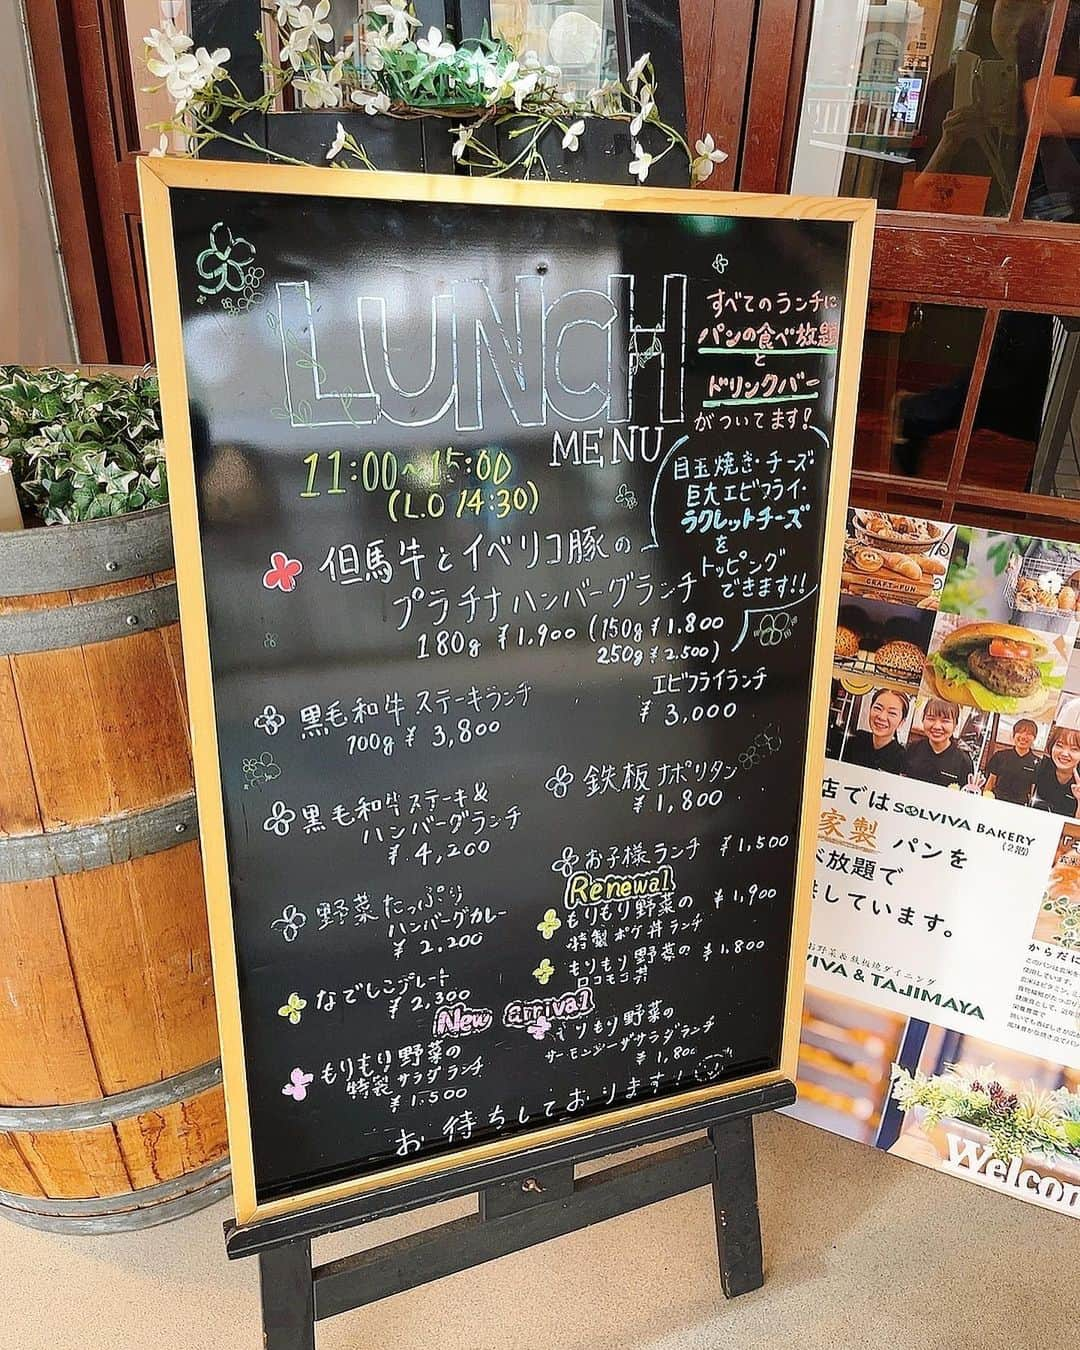 LUNCH
MENU
11:00~15:00
(L.O 14:30)
すべてのランチに
パンの食べ放題
と
ドリンクバー
がついてます!
目玉焼き・チーズ・
巨大エビフライ・
ラクレットチーズ
を
トッピング
できます!!
但馬牛とイベリコ豚の
プラチナハンバーグランチ
180g ¥1,900 (150g ¥1,800
250g ¥2,500)
エビフライランチ
¥3,000
黒毛和牛ステーキランチ
100g ¥3,800
鉄板ナポリタン
¥1,800
黒毛和牛ステーキ&
ハンバーグランチ
¥4,200
お子様ランチ ¥1,500
野菜たっぷり
ハンバーグカレー
¥2,200
Renewal
もりもり野菜の ¥1,900
特製ポケ丼ランチ
もりもり野菜の ¥1,800
ロコモコ丼
なでしこプレート
¥2,300
New arrival
もりもり野菜の
特製サラダランチ
¥1,500
もりもり野菜の
サーモンシーザーサラダランチ
¥1,800
お待ちしております!
CRAFT FUN
店では SOLVIVA BAKERY
(2階)
家製 パンを
べ放題で
しています。
お野菜&鉄板焼ダイニング
VIVA & TAJIMAYA
からだに
このパンは玄米を
使用しています。
Welcom